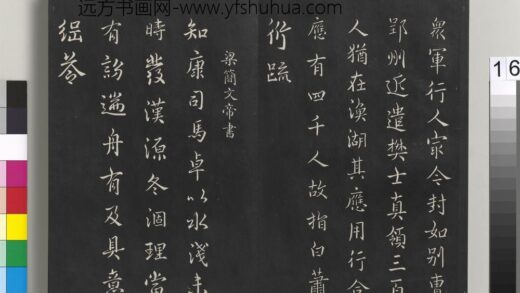 远方书画网-www.yfshuhua.com
眾軍行人家令封如別曹
郢州近遣樊士真領三百
人猶在渙湖其應用行合
應有四千人故指白蕭
衍疏
梁簡文帝書
知康司馬卓以水淺未
時發漢源冬涸理當
有訪遄舟有及具意
綱答
16